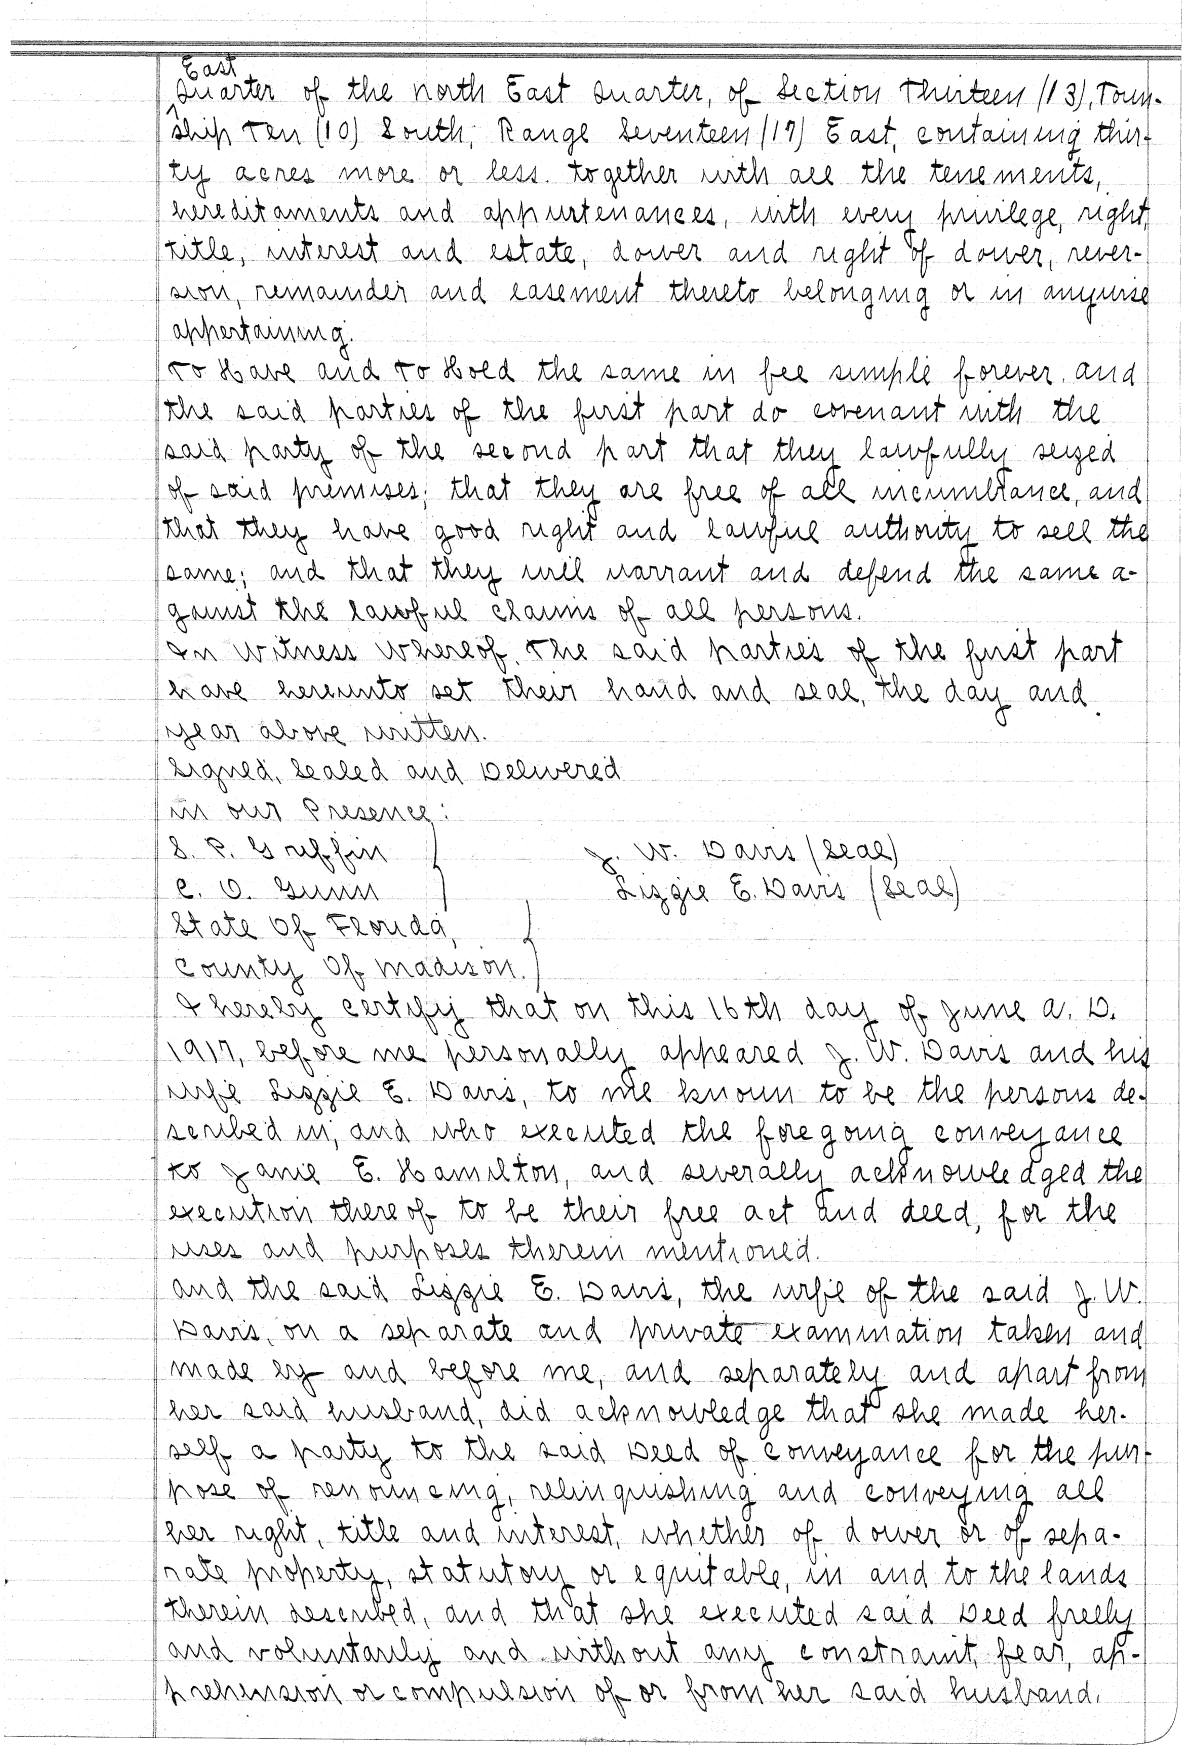 East
Quarter of the north East Quarter, of Section Thirteen (13), Town-
ship Ten (10) South, Range Seventeen (17) East, containing thir-
ty acres more or less. together with all the tenements,
hereditaments and appurtenances, with every privilege, right,
title, interest and estate, dower and right of dower, rever-
sion, remainder and easement thereto belonging or in anywise
appertaining.
To Have and To Hold the same in fee simple forever. and
the said parties of the first part do covenant with the
said party of the second part that they lawfully seized
of said premises; that they are free of all incumbrance, and
that they have good right and lawful authority to sell the
same; and that they will warrant and defend the same a-
gainst the lawful claims of all persons.
In Witness Whereof, The said parties of the first part
have hereunto set their hand and seal, the day and
year above written.
Signed, Sealed and Delivered
in our Presence:
S. P. Griffin J. W. Davis (Seal)
C. O. Gunn Lizzie E. Davis (Seal)
State Of Florida,
County Of Madison.
I hereby certify that on this 16th day of June A. D.
1917, before me personally appeared J. W. Davis and his
wife Lizzie E. Davis, to me known to be the persons de-
scribed in, and who executed the foregoing conveyance
to Janie E. Hamilton, and severally acknowledged the
execution thereof to be their free act and deed, for the
uses and purposes therein mentioned.
and the said Lizzie E. Davis, the wife of the said J. W.
Davis, on a separate and private examination taken and
made by and before me, and separately and apart from
her said husband, did acknowledge that she made her-
self a party to the said Deed of Conveyance for the pur-
pose of renouncing, relinquishing and conveying all
her right, title and interest, whether of dower or of sepa-
rate property, statutory or equitable, in and to the lands
therein described, and that she executed said Deed freely
and voluntarily and without any constraint, fear, ap-
prehension or compulsion of or from her said husband.